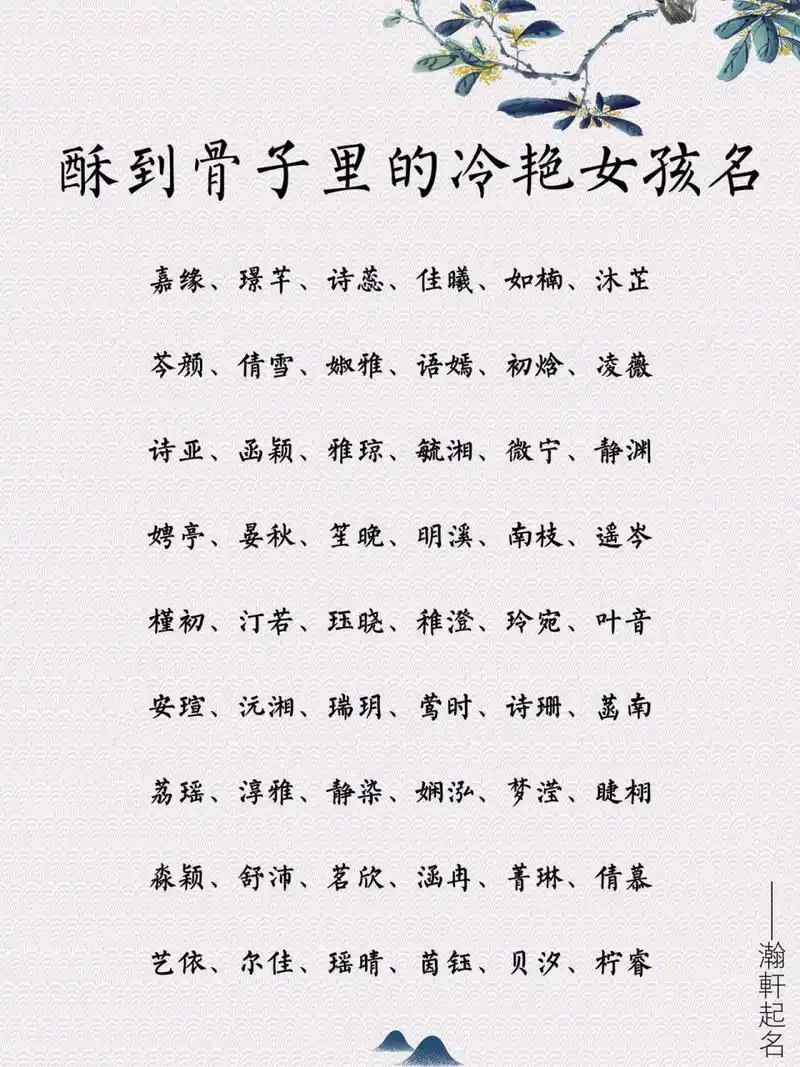 酥到骨子里的冷艳女孩名
嘉缘、璟芊、诗蕊、佳曦、如楠、沐芷
芩颜、倩雪、婌雅、语嫣、初焓、凌薇
诗亚、函颖、雅琼、毓湘、微宁、静渊
娉亭、晏秋、笙晚、明溪、南枝、遥岑
槿初、汀若、珏晓、稚澄、玲宛、叶音
安瑄、沅湘、瑞玥、莺时、诗珊、菡南
荔瑶、淳雅、静染、娴泓、梦滢、睫栩
淼颖、舒沛、茗欣、涵冉、菁琳、倩慕
艺依、尔佳、瑶晴、茵钰、贝汐、柠睿
——瀚軒起名